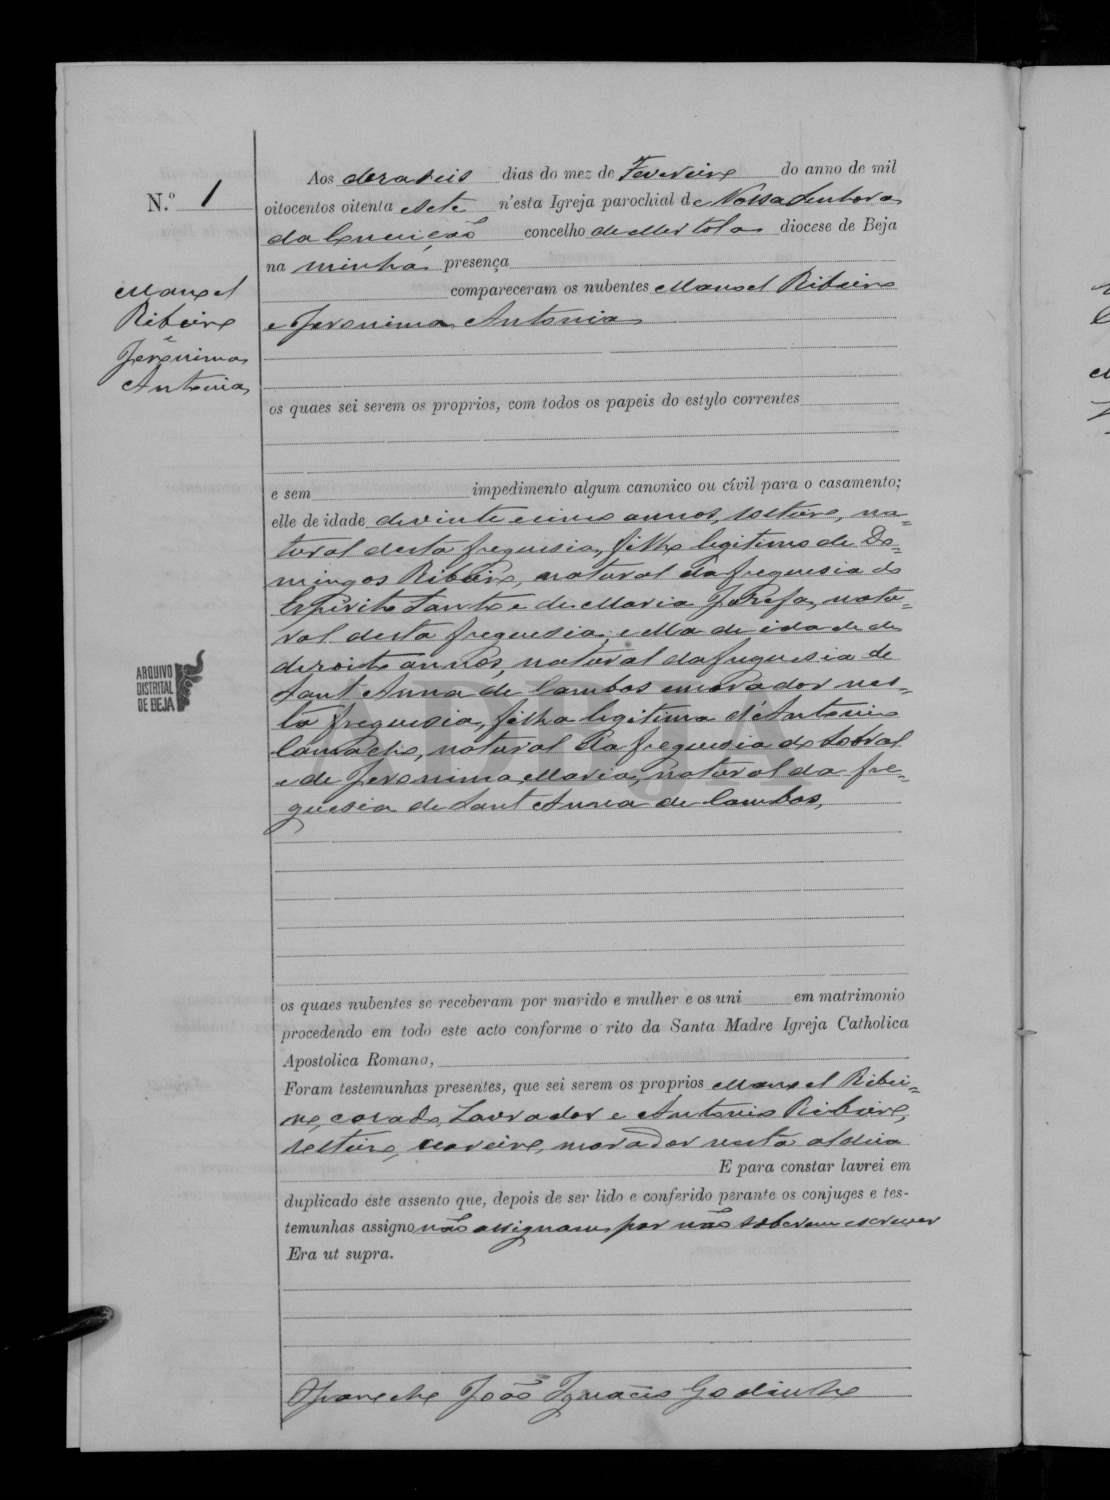 N.º 1
Manoel
Ribeiro
e
Jeronima
Antonia
Aos dezaseis dias do mez de Fevereiro do anno de mil
oitocentos oitenta e sete n'esta Igreja parochial de Nossa Senhora
da Conceição concelho de Mertola diocese de Beja
na minha presença
compareceram os nubentes Manoel Ribeiro
e Jeronima Antonia
os quaes sei serem os proprios, com todos os papeis do estylo correntes
e sem impedimento algum canonico ou cívil para o casamento;
elle de idade de vinte e cinco annos, solteiro, na-
tural desta freguesia, filho legitimo de Do-
mingos Ribeiro, natural da freguesia do
Espirito Santo e de Maria Josefa, natu-
ral desta freguesia; e ella de idade de
dezoito annos, natural da freguesia de
Sant Anna de Cambas e morador nes-
ta freguesia, filha legitima d'Antonio
Camacho, natural da freguesia do Sobral
e de Jeronima Maria, natural da fre-
guesia de Sant Anna de Cambas,
ARQUIVO
DISTRITAL
DE BEJA
ADBJA
os quaes nubentes se receberam por marido e mulher e os uni em matrimonio
procedendo em todo este acto conforme o rito da Santa Madre Igreja Catholica
Apostolica Romana,
Foram testemunhas presentes, que sei serem os proprios Manoel Ribei-
ro, casado, Lavrador e Antonio Ribeiro,
solteiro, morador nesta aldeia
E para constar lavrei em
duplicado este assento que, depois de ser lido e conferido perante os conjuges e tes-
temunhas assigno não assignam por não soberem escrever
Era ut supra.
O Parocho João Ignacio Godinho